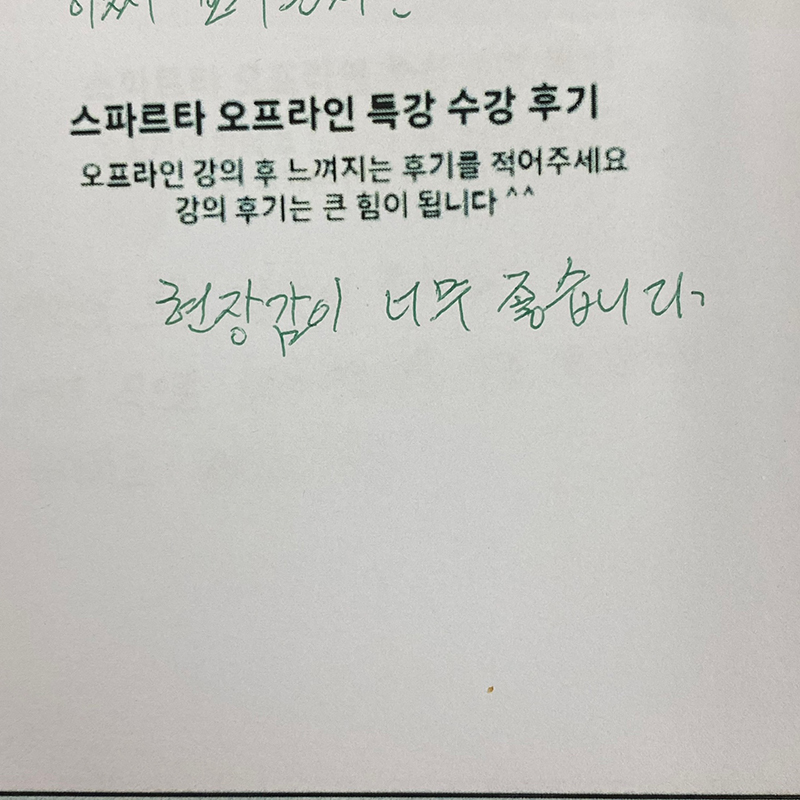 스파르타 오프라인 특강 수강 후기
오프라인 강의 후 느껴지는 후기를 적어주세요
강의 후기는 큰 힘이 됩니다 ^^
현장감이 너무 좋습니다.